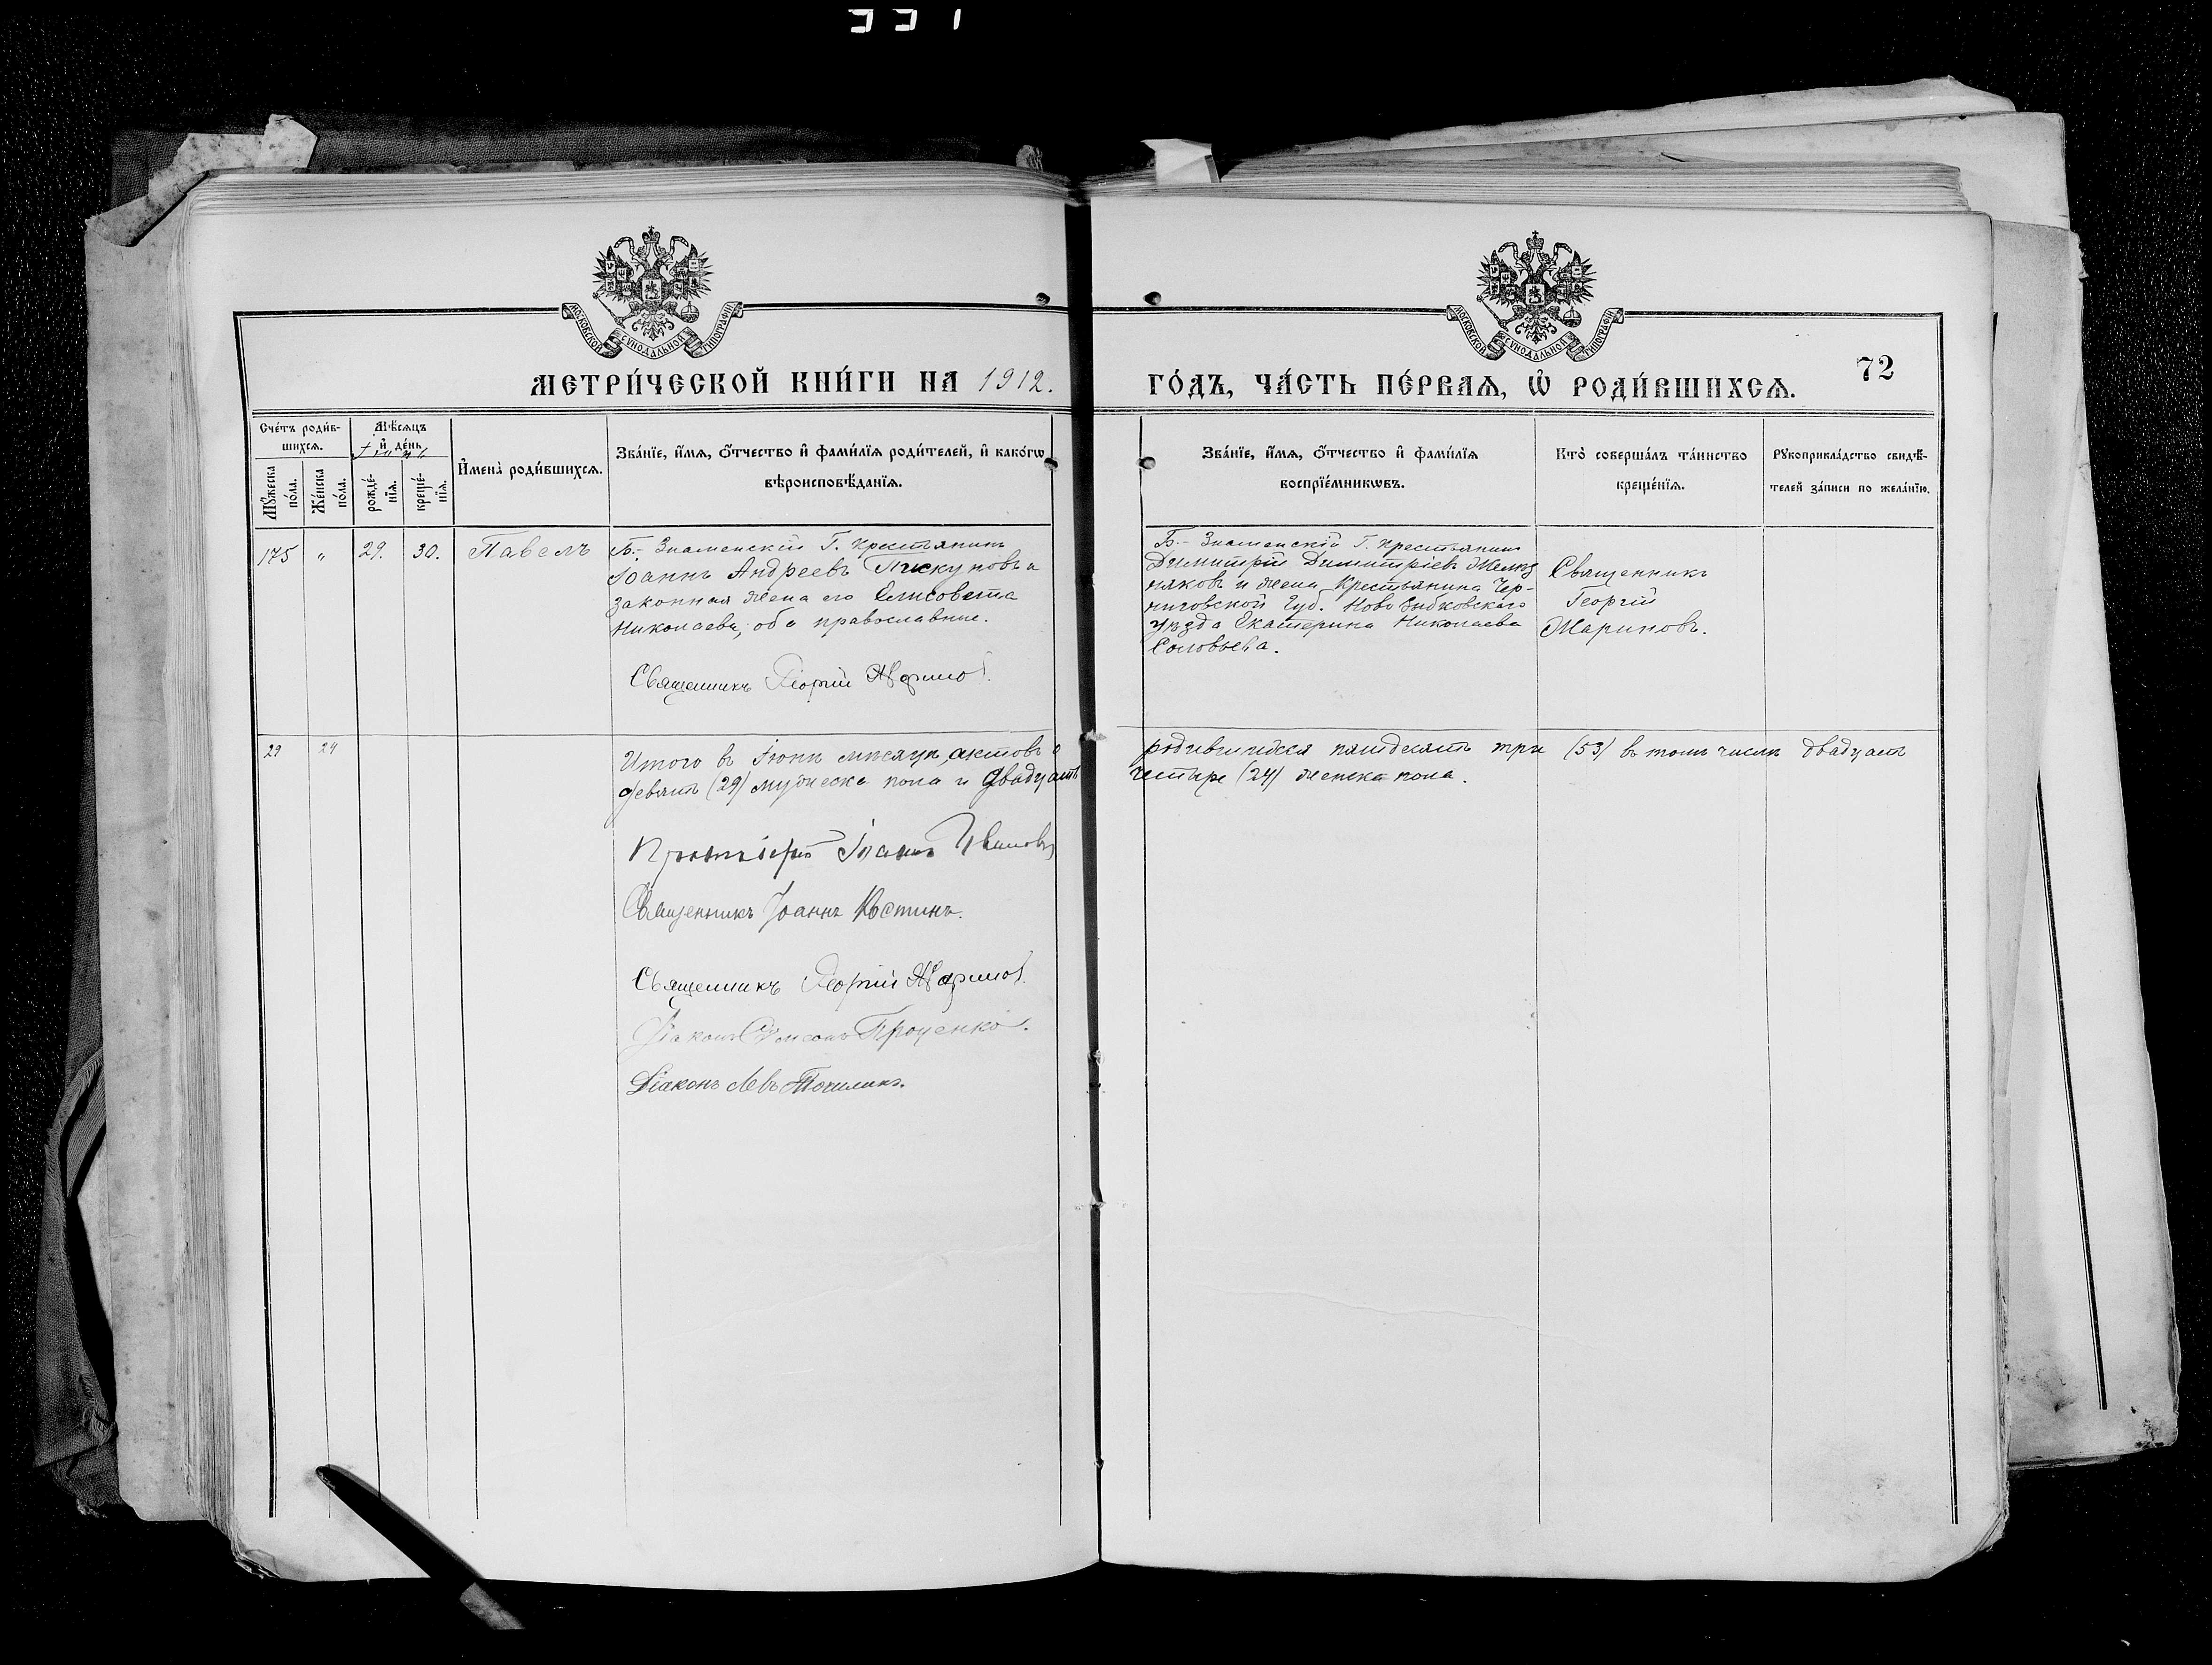 331
МОСКОВСКОЙ СѴНОДАЛЬНОЙ ТИПОГРАФІИ
МОСКОВСКОЙ СѴНОДАЛЬНОЙ ТИПОГРАФІИ
72
МЕТРИ́ЧЕСКОЙ КНИ́ГИ НА 1912.
ГО́ДЪ, ЧА́СТЬ ПЕ́РВАЯ, Ѽ РОДИ́ВШИХСЯ.
Сче́тъ роди́в-
шихся.
Мѣ́сяцъ
и҆ де́нь
Мꙋ́жеска
по́ла.
Же́нска
по́ла.
рожде́-
нїя.
креще́-
нїя.
И҆мена̀ роди́вшихся.
Зва́нїе, и҆́мя, ѻ҆́тчество и҆ фами́лїя роди́телей, и҆ како́гѡ
вѣроисповѣ́данїя.
Зва́нїе, и҆́мя, ѻ҆́тчество и҆ фами́лїя
воспрїе́мникѡвъ.
Кто̀ соверша́лъ та́инство
креще́нїя.
Рꙋкоприкла́дство свидѣ́-
телей за́писи по жела́нїю.
175 " 29. 30. Павелъ
Б.- Знаменскій Г. Крестьянинъ
Іоаннъ Андреевъ Пискуновъ и
законная жена его Елисавета
Николаева, оба православные.
Священникъ Георгій Мариновъ.
Б.- Знаменскій Г. Крестьянинъ
Димитрій Димитріевъ
няковъ и жена Крестьянина Чер-
ниговской Губ. Ново Зыбковскаго
уѣзда Екатерина Николаева
Соловьева.
Священникъ
Георгій
Мариновъ.
29 24
Итого въ Іюнѣ мѣсяцѣ актовъ о родившихся пятдесятъ три (53) въ томъ числѣ двадцать
девять (29) мужеска пола и двадцать четыре (24) женска пола.
Протоіерей Іоаннъ Ивановъ
Священникъ Іоаннъ Костинъ.
Священникъ Георгій Мариновъ.
Діаконъ Симеонъ Проценко.
Діаконъ Левъ